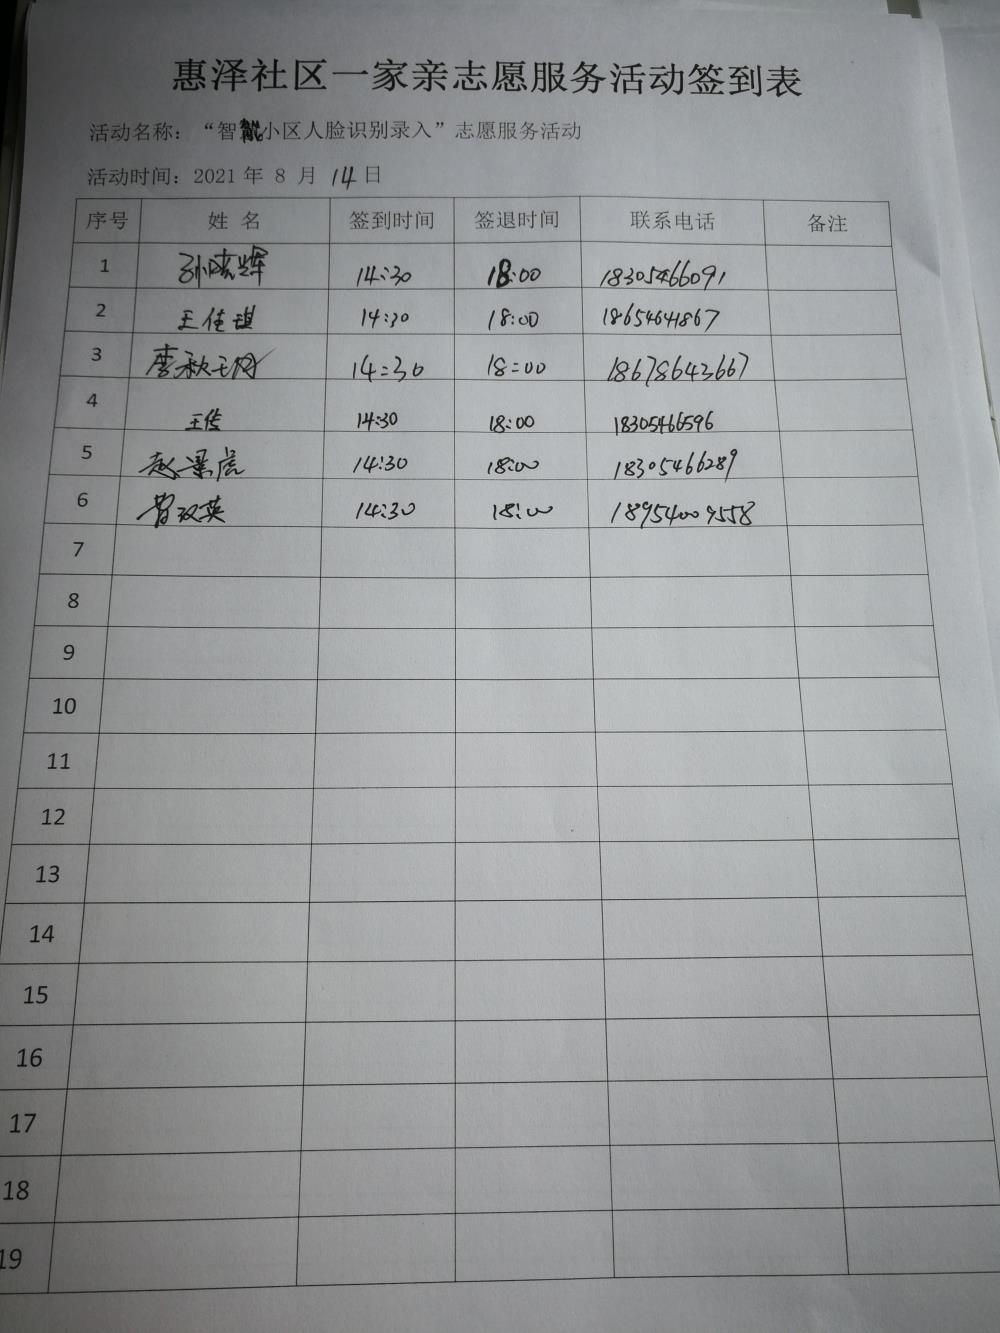 惠泽社区一家亲志愿服务活动签到表
活动名称：“智能小区人脸识别录入”志愿服务活动
活动时间：2021 年 8 月 14 日
序号 姓 名 签到时间 签退时间 联系电话 备注
1 孙晓辉 14:30 18:00 18305466091
2 王佳琪 14:30 18:00 18654641867
3 李秋 14:30 18:00 18678643667
4 王传 14:30 18:00 18305466596
5 赵景虎 14:30 18:00 18305466289
6 曾双英 14:30 18:00 18954009558
7
8
9
10
11
12
13
14
15
16
17
18
19